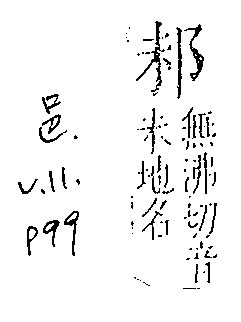 無沸切音
未地名
邑.
V.11.
p99